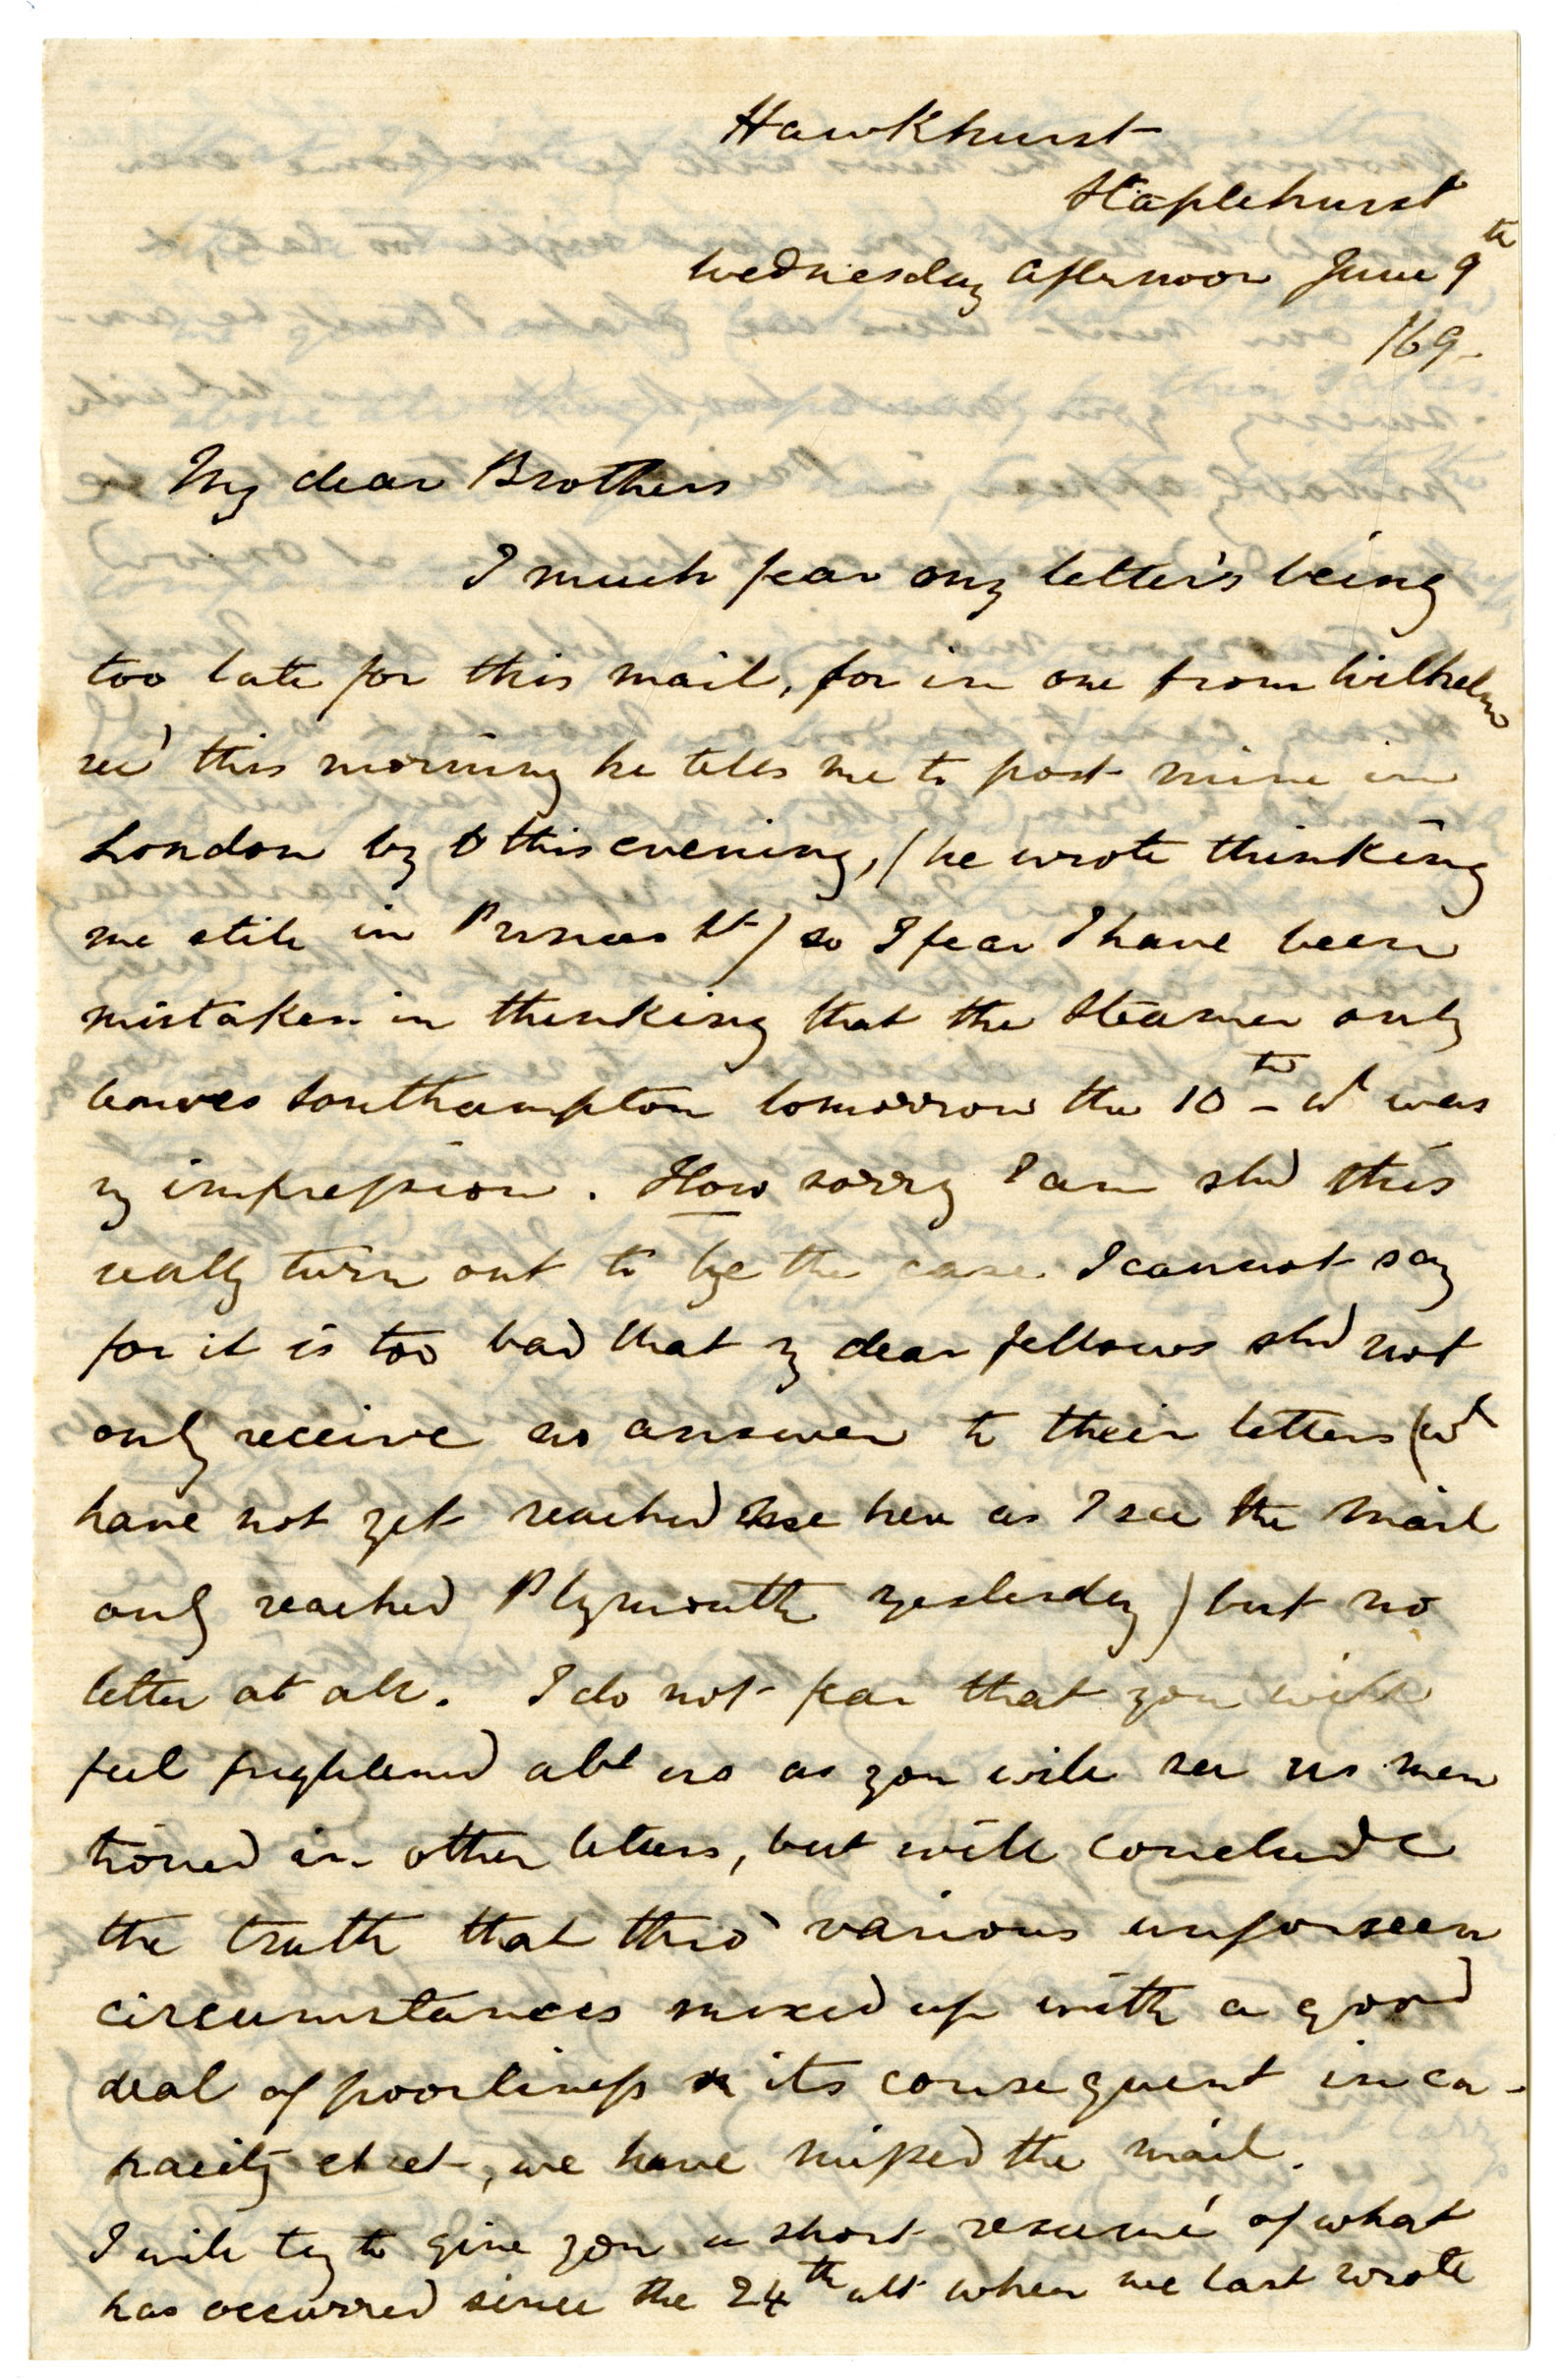 Hawkhurst
Staplehurst
Wednesday afternoon June 9th
/69.
My dear Brothers
I much fear my letter's being
too late for this mail, for in one from Wilhelm
recd this morning he tells me to post mine in
London by 6 this evening, (he wrote thinking
me still in Princes St) so I fear I have been
mistaken in thinking that the Steamer only
leaves Southampton tomorrow the 10th wh was
my impression. How sorry I am shd this
really turn out to be the case I cannot say
for it is too bad that my dear fellows shd not
only receive no answer to their letters (wh
have not yet reached me here as I see the mail
only reached Plymouth yesterday) but no
letter at all. I do not fear that you will
feel frightened abt us as you will see us men
tioned in other letters, but will conclude
the truth that thro' various unforseen
circumstances mixed up with a good
deal of poorliness & its consequent inca-
pacity etcet, we have missed the mail.
I will try to give you a short resumé of what
has occurred since the 24th ult when we last wrote